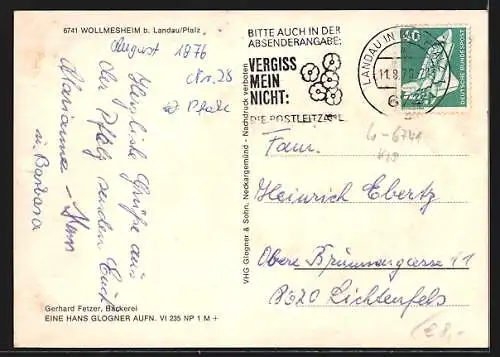 6741 WOLLMESHEIM b. Landau/Pfalz
August 1976
Nr. 28
Pfalz
Herzliche Grüße aus
der Pfalz senden Euch
Marianne - Hans
u. Barbara
Gerhard Fetzer, Bäckerei
EINE HANS GLOGNER AUFN. VI 235 NP 1 M +
VHG Glogner & Sohn, Neckargemünd - Nachdruck verboten
BITTE AUCH IN DER
ABSENDERANGABE:
VERGISS
MEIN
NICHT:
DIE POSTLEITZAHL
LANDAU IN
11.8.76
DEUTSCHE BUNDESPOST
G-6741
Fam.
Heinrich Ebertz
Obere Brunnengasse 11
8620 Lichtenfels
€8,-